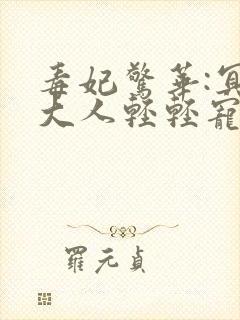 毒妃驚華:冥
大人輕輕寵
羅元貞